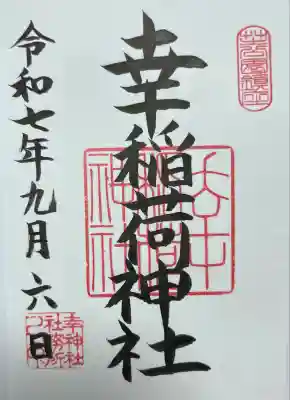 幸稲荷神社
令和七年九月六日
幸神社
社務所